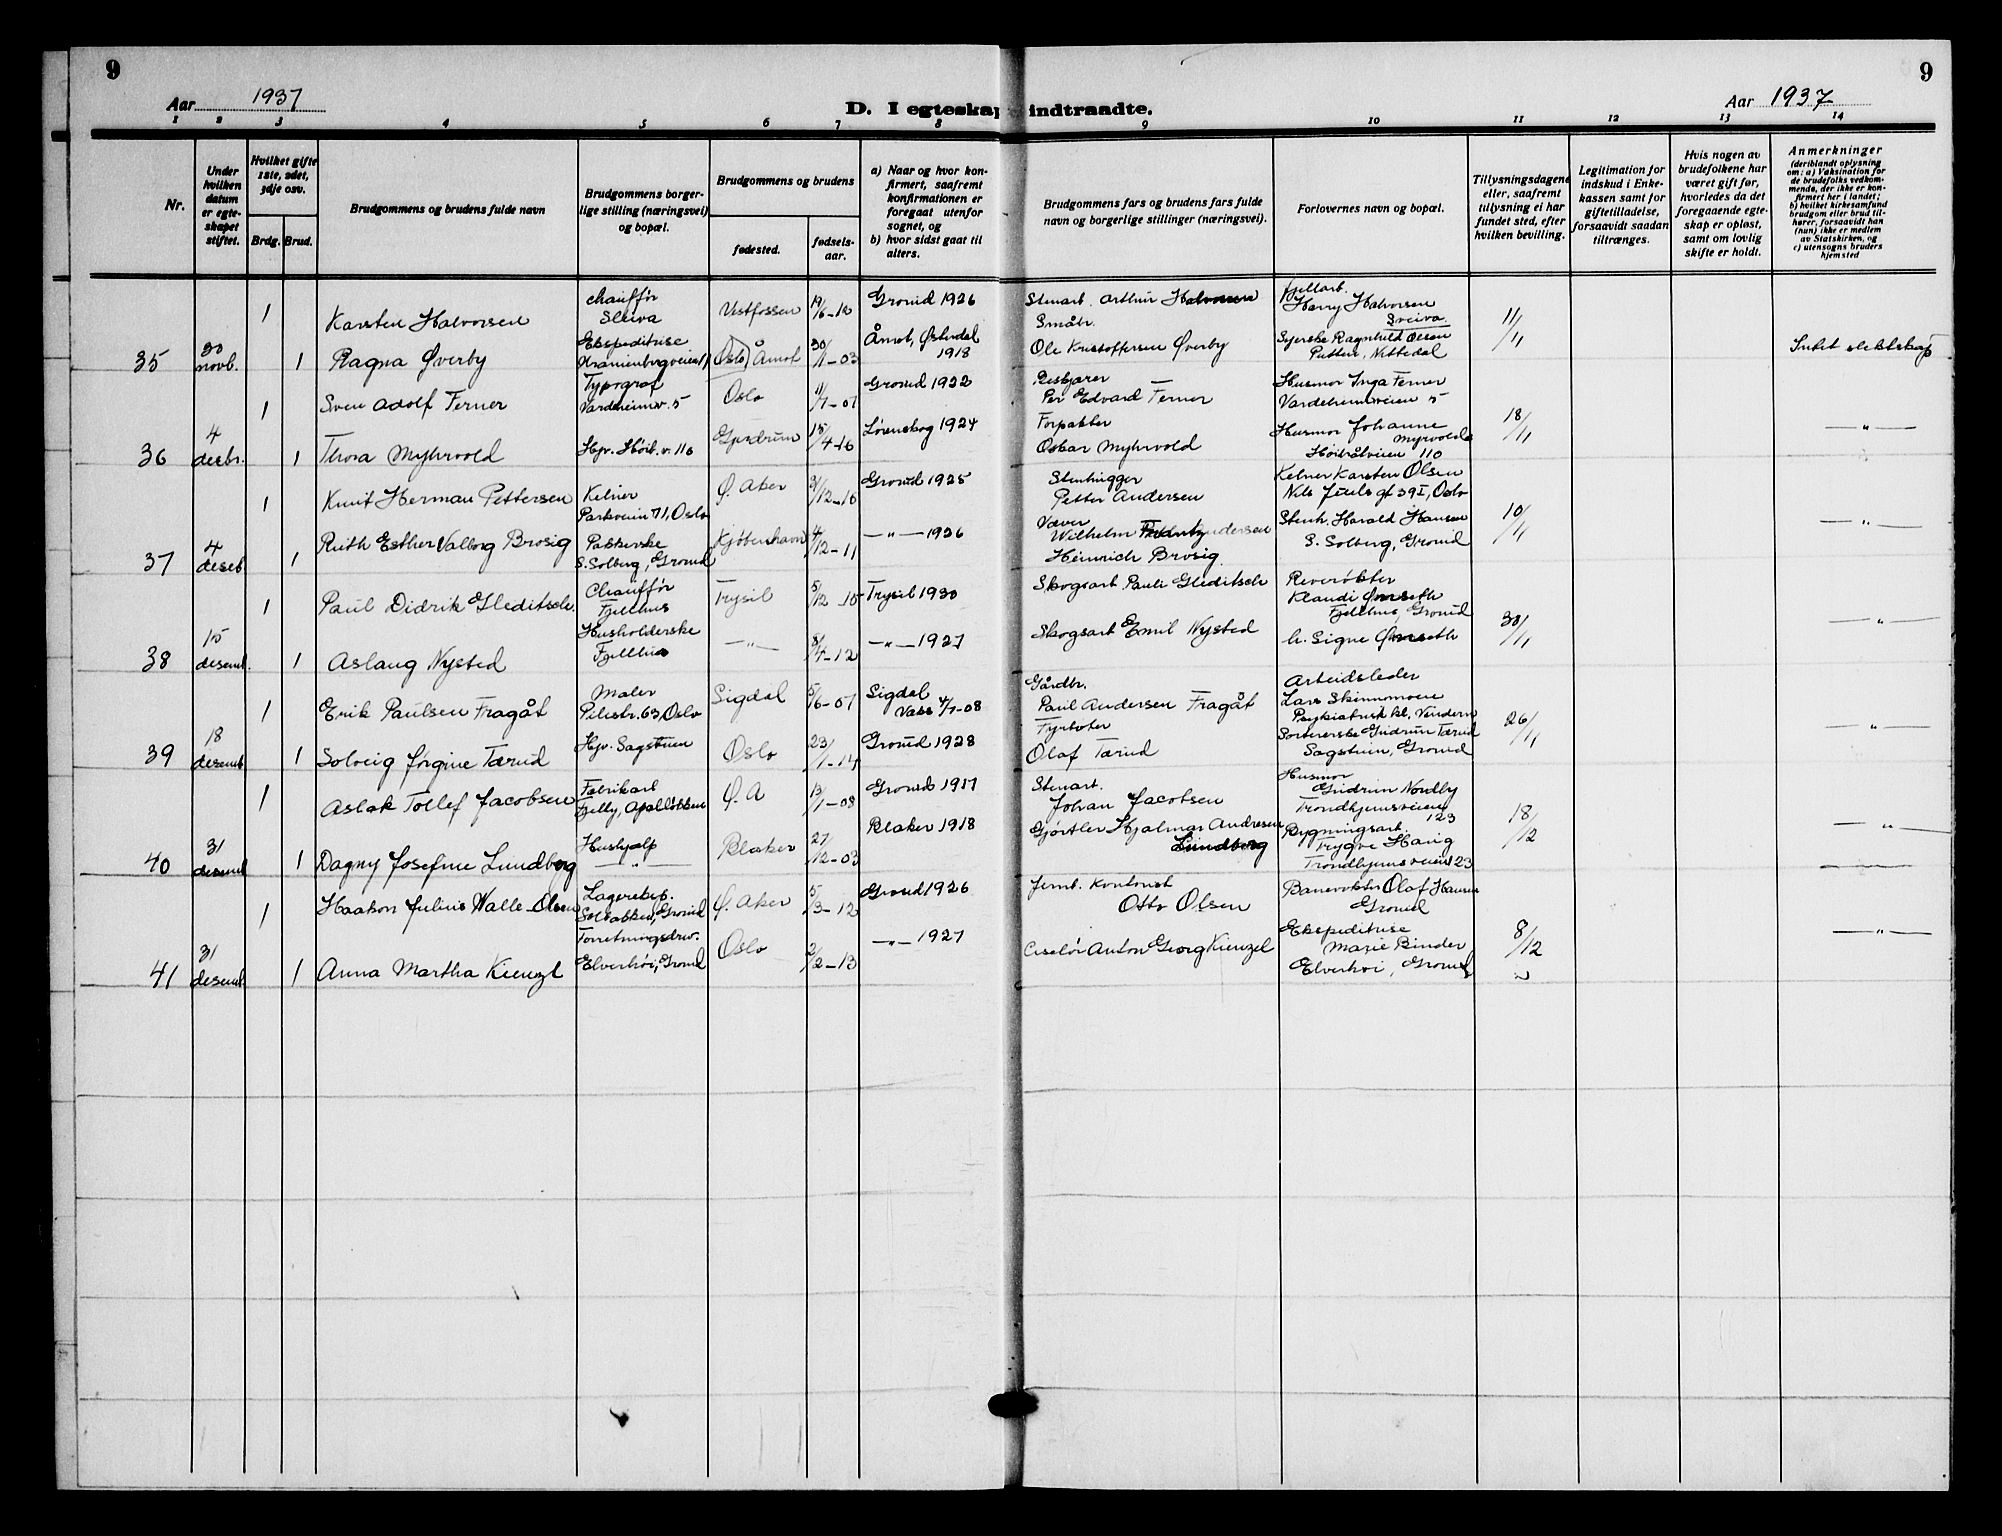 9
9
Aar 1937
D. I egteskap indtraadte.
Aar 1937
1 2 3 4 5 6 7 8 9 10 11 12 13 14
Nr.
Under hvilken datum er egteskapet stiftet.
Hvilket gifte 1ste, 2det, 3dje osv.
Brdg. Brud.
Brudgommens og brudens fulde navn
Brudgommens borgerlige stilling (næringsvei) og bopæl.
Brudgommens og brudens
fødested.
fødselsaar.
a) Naar og hvor konfirmert, saafremt konfirmationen er foregaat utenfor sognet, og
b) hvor sidst gaat til alters.
Brudgommens fars og brudens fars fulde navn og borgerlige stillinger (næringsvei).
Forlovernes navn og bopæl.
Tillysningsdagene eller, saafremt tillysning ei har fundet sted, efter hvilken bevilling.
Legitimation for indskud i Enkekassen samt for giftetilladelse, forsaavidt saadan tiltrænges.
Hvis nogen av brudefolkene har været gift før, hvorledes da det foregaaende egteskap er opløst, samt om lovlig skifte er holdt.
Anmerkninger
(deriblandt oplysning om: a) Vaksination for de brudefolks vedkommende, der ikke er konfirmert her i landet;
b) hvilket kirkesamfund brudgom eller brud tilhører, forsaavidt han (hun) ikke er medlem av Statskirken, og
c) utensogns bruders hjemsted
35 30 novb.
1 Karsten Halvorsen chauffør Sleiva Vestfossen 19/6-10 Grorud 1926 Stenarb. Arthur Halvorsen fjellarb. Harry Halvorsen Sreiva 11/11
1 Ragna Øverby Ekspeditrise Oslo, Åmot 30/1-03 Åmot, Østerdal 1918 Småbr. Ole Kristoffersen Øverby Syerske Ragnhild Olsen Nittedal Intet slektskap
36 4 desbr.
1 Sven Adolf Ferner Typograf Vardeheimv. 5 Oslo 11/7-07 Grorud 1922 Per Edvard Ferner Husmor Inga Ferner Vardeheimveien 5 18/11
1 Thora Myhrvold Hjv. Høib. v. 110 Gjerdrum 15/4-16 Lørenskog 1924 Forpakter Oskar Myhrvold Husmor Johanne Myrvold Høibråtveien 110 — " —
37 4 deseb.
1 Knut Herman Pettersen Kelner Parkveien 71, Oslo Ø. Aker 31/12-10 Grorud 1925 Stenhugger Petter Andersen Kelner Karsten Olsen Nils Juels gt 39 I, Oslo 10/11
1 Ruth Esther Valborg Brosig Pakkerske S. Solberg, Grorud Kjøbenhavn 4/12-11 — " — 1926 Væver Wilhelm Heinrich Brosig Stenh. Harald Hansen S. Solberg, Grorud — " —
38 15 desemb.
1 Paul Didrik Gleditsch Chauffør Fjellhus Trysil 5/12-15 Trysil 1930 Skogsarb Pauli Gleditsch Reverøkter Klaudi Fjellhus, Grorud 30/11
1 Aslaug Nysted Husholderske Fjellhus — " — 8/4-12 — " — 1927 Skogsarb Emil Nysted h. Signe — " —
39 18 desemb.
1 Erik Paulsen Fragåt Maler Pilestr. 63, Oslo Sigdal 5/6-07 Sigdal Gårdbr. Paul Andersen Fragåt Arbeidsleder Lars Skinnemoen Psykiatrisk kl. Vindern 26/11
1 Solveig Jørgine Tærud Hjv. Sagstuen Oslo 23/1-14 Grorud 1928 Fyrbøter Olaf Tærud Sortererske Gudrun Tærud Sagstuen, Grorud — " —
40 31 desemb
1 Aslak Tollef Jacobsen Fabrikarb Fjelly, Apalløkken Ø. A 13/1-08 Grorud 1917 Stenarb. Johan Jacobsen Husmor Gudrun Nordby Trondhjemsveien 123 18/12
1 Dagny Josefine Lundberg Hushjelp — " — Blaker 27/12-03 Blaker 1918 Gjørtler Hjalmar Andresen Lundberg Bygningsarb. Trygve Haug Trondhjemsveien 123 — " —
41 31 desemb.
1 Haakon Julius Walle-Olsen Lagereksp. Solbakken, Grorud Ø. Aker 5/3-12 Grorud 1926 Jernb. kontorist Otto Olsen Banevokter Olaf Hansen Grorud 8/12
1 Anna Martha Kienzl Forretningsdrv. Elverhøi, Grorud Oslo 2/2-13 — " — 1927 Ciselør Anton Georg Kienzel Ekspeditrise Marie Binder Elverhøi, Grorud — " —